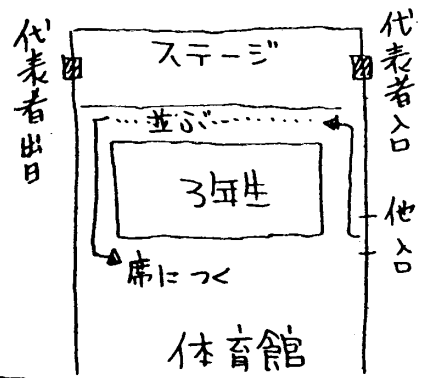 代表者出口
ステージ
代表者入口
…並ぶ………
3年生
他入口
席につく
体育館